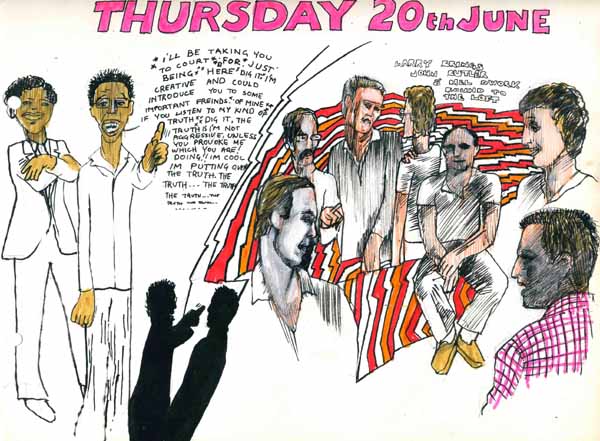 THURSDAY 20th JUNE
I'LL BE TAKING YOU
TO COURT "FOR" JUST
BEING "HERE" DIG IT. I'M
CREATIVE AND COULD
INTRODUCE YOU TO SOME
IMPORTANT FREINDS "OF MINE"
IF YOU LISTEN TO MY KIND OF
TRUTH "DIG IT, THE
TRUTH IS I'M NOT
AGGRESSIVE, UNLESS
YOU PROVOKE ME
WHICH YOU ARE!
DOING! I'M COOL
I'M PUTTING OVER
THE TRUTH. THE
TRUTH... THE TRUTH
THE TRUTH... THE
TRUTH THE TRUTH...
LARRY BRINGS
JOHN BUTLER
& MEL
ROUND TO
THE LOFT